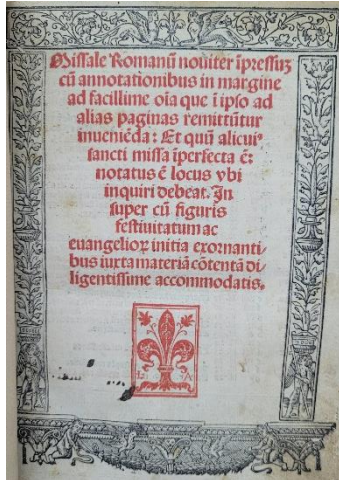 Missale Romanū noviter īpressuʒ
cū annotationibus in margine
ad facillime oīa que ī ipso ad
alias paginas remittūtur
inueniēda: Et quū alicuiꝰ
sancti missa īperfecta ē:
notatus ē locus vbi
inquiri debeat. In
super cū figuris
festiuitatum ac
euangelioꝝ initia exornanti-
bus iuxta materiā cōtentā di-
ligentissime accommodatis.
L A